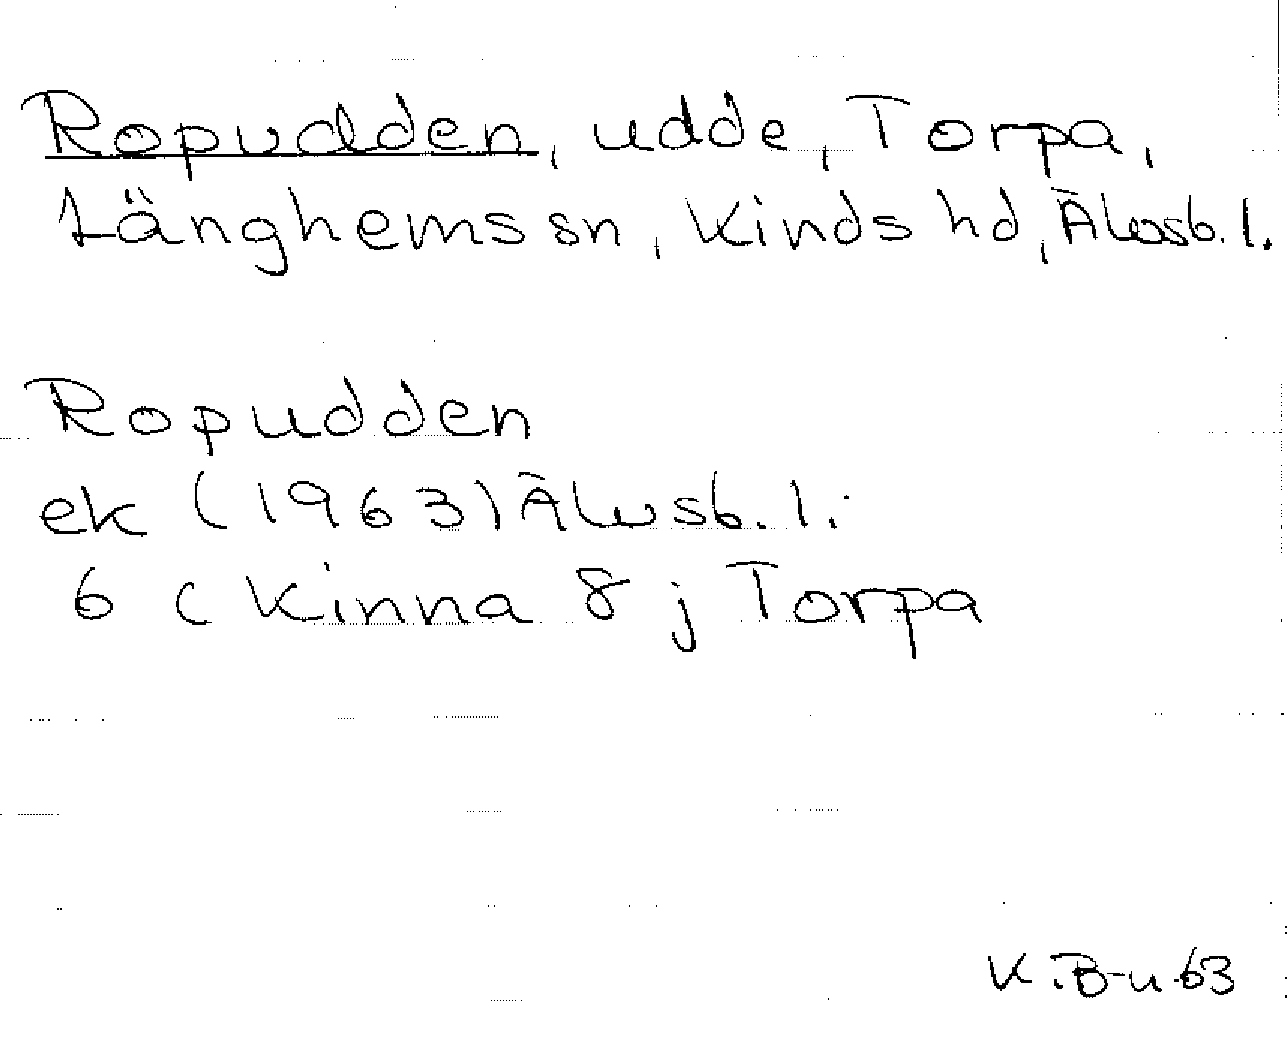 Ropudden, udde, Torpa,
Länghems sn, Kinds hd, Älvsb. l.
Ropudden
ek (1963) Älvsb. l.
6 C Kinna 8 j Torpa
K. B-u 63